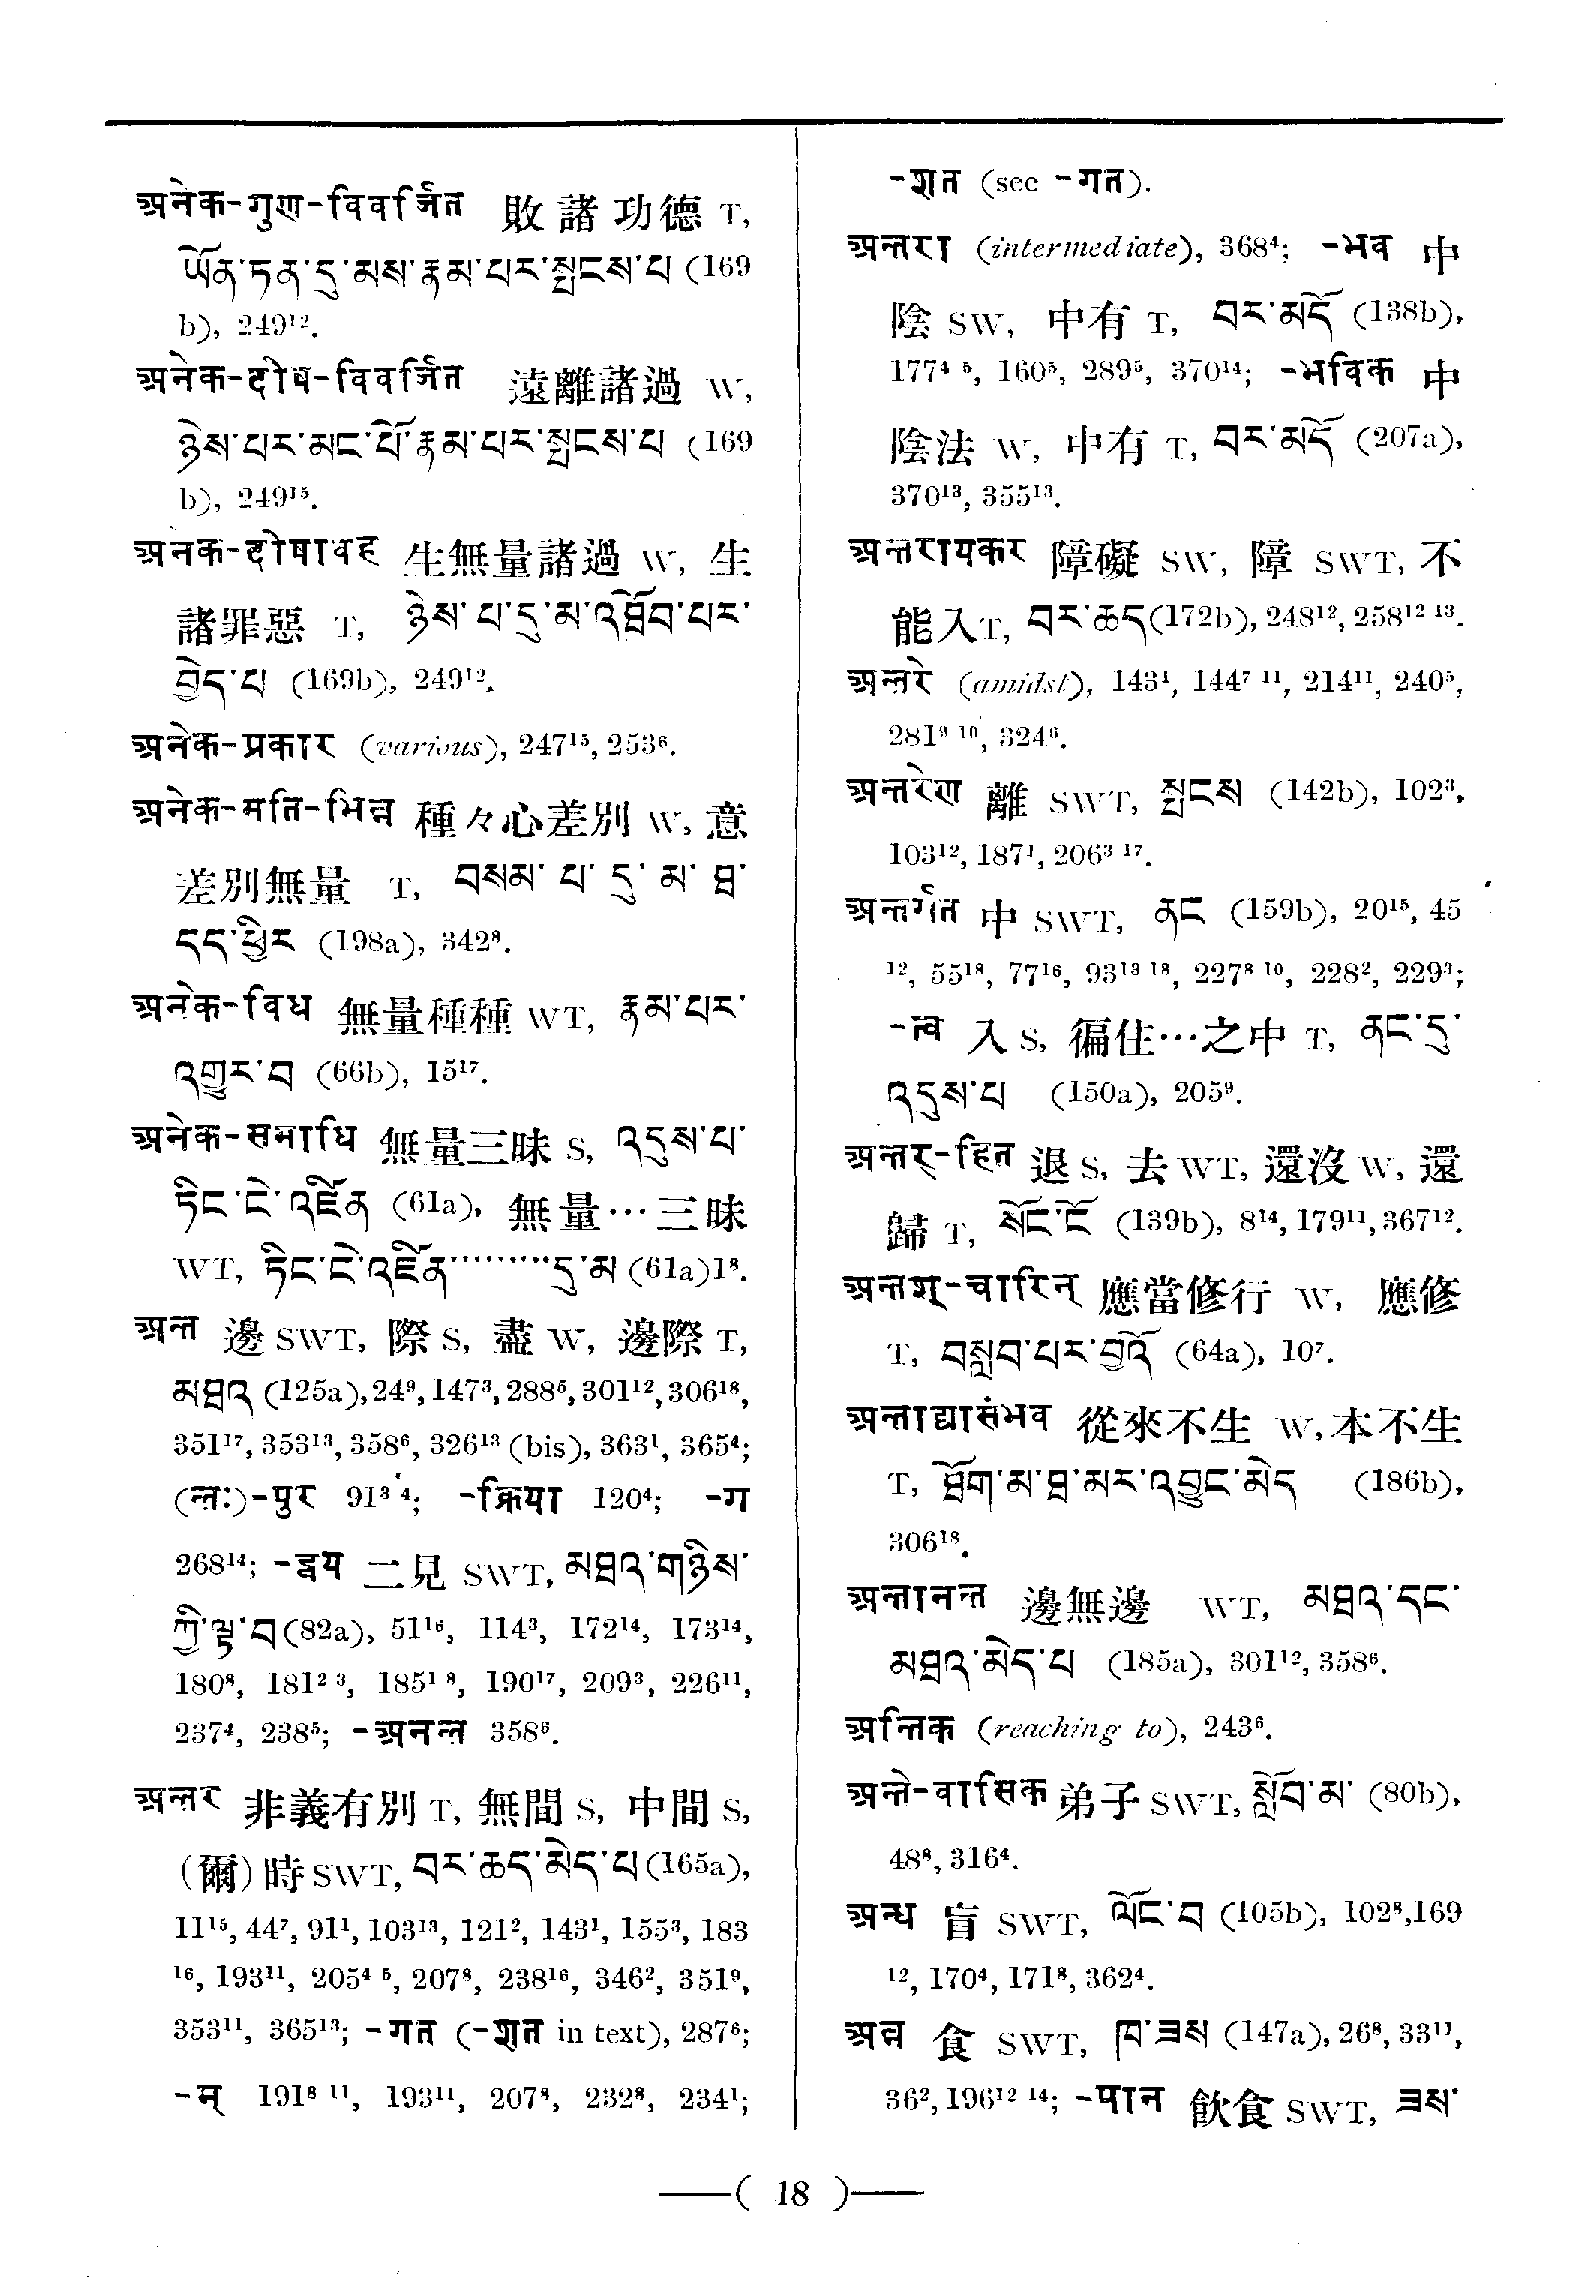 अनेक-गुण-विवर्जित 敗諸功德 T,
ཡོན་ཏན་དུ་མས་རྣམ་པར་སྤྲངས་པ (169
b), 249¹².
अनेक-दोष-विवर्जित 遠離諸過 W,
ཉེས་པར་མང་པོ་རྣམ་པར་སྤྲངས་པ (169
b), 249¹⁵.
अनक-दोषावह 生無量諸過 W, 生
諸罪惡 T, ཉེས་པ་དུ་མ་འཐོབ་པར་
བྱེད་པ (169b), 249¹².
अनेक-प्रकार (various), 247¹⁵, 253⁶.
अनेक-मति-भिन्न 種々心差別 W, 意
差別無量 T, བསམ་པ་དུ་མ་ཐ་
དད་ཕྱིར (198a), 342⁸.
अनेक-विध 無量種種 WT, རྣམ་པར་
འགྱུར་བ (66b), 15¹⁷.
अनेक-समाधि 無量三昧 S, འདུས་པ་
ཏིང་ངེ་འཛིན (61a), 無量…三昧
WT, ཏིང་ངེ་འཛིན………དུ་མ (61a)1⁸.
अन्त 邊 SWT, 際 S, 盡 W, 邊際 T,
མཐའ (125a), 24⁹, 147³, 288⁵, 301¹², 306¹⁸,
351¹⁷, 353¹³, 358⁶, 326¹³ (bis), 363¹, 365⁴;
(न्तः)-पुर 91³ ⁴; -क्रिया 120⁴; -ग
268¹⁴; -द्वय 二見 SWT, མཐའ་གཉིས་
ཀྱི་ལྟ་བ (82a), 51¹⁶, 114³, 172¹⁴, 173¹⁴,
180⁸, 181² ³, 185¹ ⁸, 190¹⁷, 209³, 226¹¹,
237⁴, 238⁵; -अनन्त 358⁶.
अन्तर 非義有別 T, 無間 S, 中間 S,
(爾)時 SWT, བར་ཆད་མེད་པ (165a),
11¹⁵, 44⁷, 91¹, 103¹³, 121², 143¹, 155³, 183
¹⁶, 193¹¹, 205⁴ ⁵, 207⁸, 238¹⁶, 346², 351⁹,
353¹¹, 365¹³; -गत (-शत in text), 287⁶;
-म् 191⁸ ¹¹, 193¹¹, 207⁸, 232⁸, 234¹;
-शत (see -गत).
अन्तरा (intermediate), 368⁴; -भव 中
陰 SW, 中有 T, བར་མདོ (138b),
177⁴ ⁵, 160⁵, 289⁵, 370¹⁴; -भविक 中
陰法 W, 中有 T, བར་མདོ (207a),
370¹³, 355¹³.
अन्तरायकर 障礙 SW, 障 SWT, 不
能入 T, བར་ཆད (172b), 248¹², 258¹² ¹³.
अन्तरे (amidst), 143¹, 144⁷ ¹¹, 214¹¹, 240⁵,
281⁹ ¹⁰, 324⁶.
अन्तरेण 離 SWT, སྤྲངས (142b), 102³,
103¹², 187¹, 206³ ¹⁷.
अन्तर्गत 中 SWT, ནང (159b), 20¹⁵, 45
¹², 55¹⁸, 77¹⁶, 93¹³ ¹⁸, 227⁸ ¹⁰, 228², 229³;
-त्व 入 S, 徧住…之中 T, ནང་དུ་
འདུས་པ (150a), 205⁹.
अन्तर्-हित 退 S, 去 WT, 還沒 W, 還
歸 T, སོང་ངོ (139b), 8¹⁴, 179¹¹, 367¹².
अन्तश्-चारिन् 應當修行 W, 應修
T, བསླབ་པར་བྱའོ (64a), 10⁷.
अन्ताद्यासंभव 從來不生 W, 本不生
T, ཐོག་མ་ཐ་མར་འབྱུང་མེད (186b),
306¹⁸.
अन्तानन्त 邊無邊 WT, མཐའ་དང་
མཐའ་མེད་པ (185a), 301¹², 358⁶.
अन्तिक (reaching to), 243⁶.
अन्ते-वासिक 弟子 SWT, སློབ་མ་ (80b),
48⁸, 316⁴.
अन्ध 盲 SWT, ལོང་བ (105b), 102⁸, 169
¹², 170⁴, 171⁸, 362⁴.
अन्न 食 SWT, ཁ་ཟས (147a), 26⁸, 33¹¹,
36², 196¹² ¹⁴; -पान 飲食 SWT, ཟས་
—( 18 )—